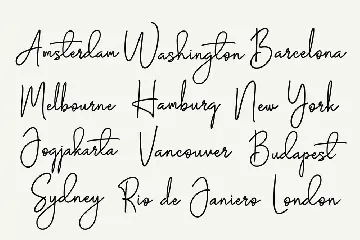 Amsterdam Washington Barcelona
Melbourne Hamburg New York
Jogjakarta Vancouver Budapest
Sydney Rio de Janiero London